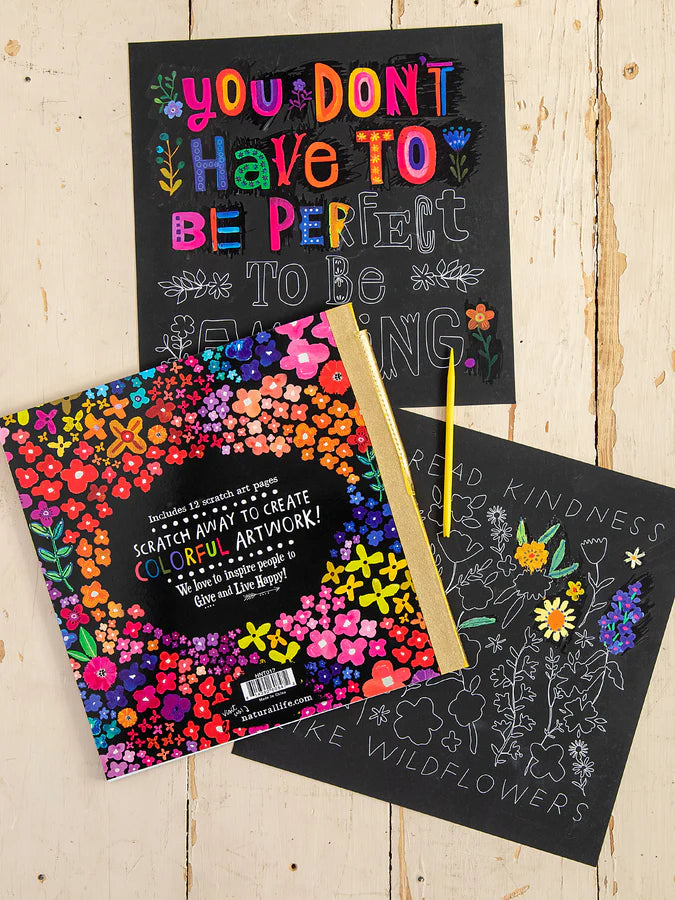 YOU DON'T
Have TO
BE PERFECT
TO Be
ING
READ KINDNESS
IKE WILDFLOWERS
Includes 12 scratch art pages
SCRATCH AWAY TO CREATE
COLORFUL ARTWORK!
We love to inspire people to
Give and Live Happy!
HNT017
Made in China
visit us!
naturallife.com